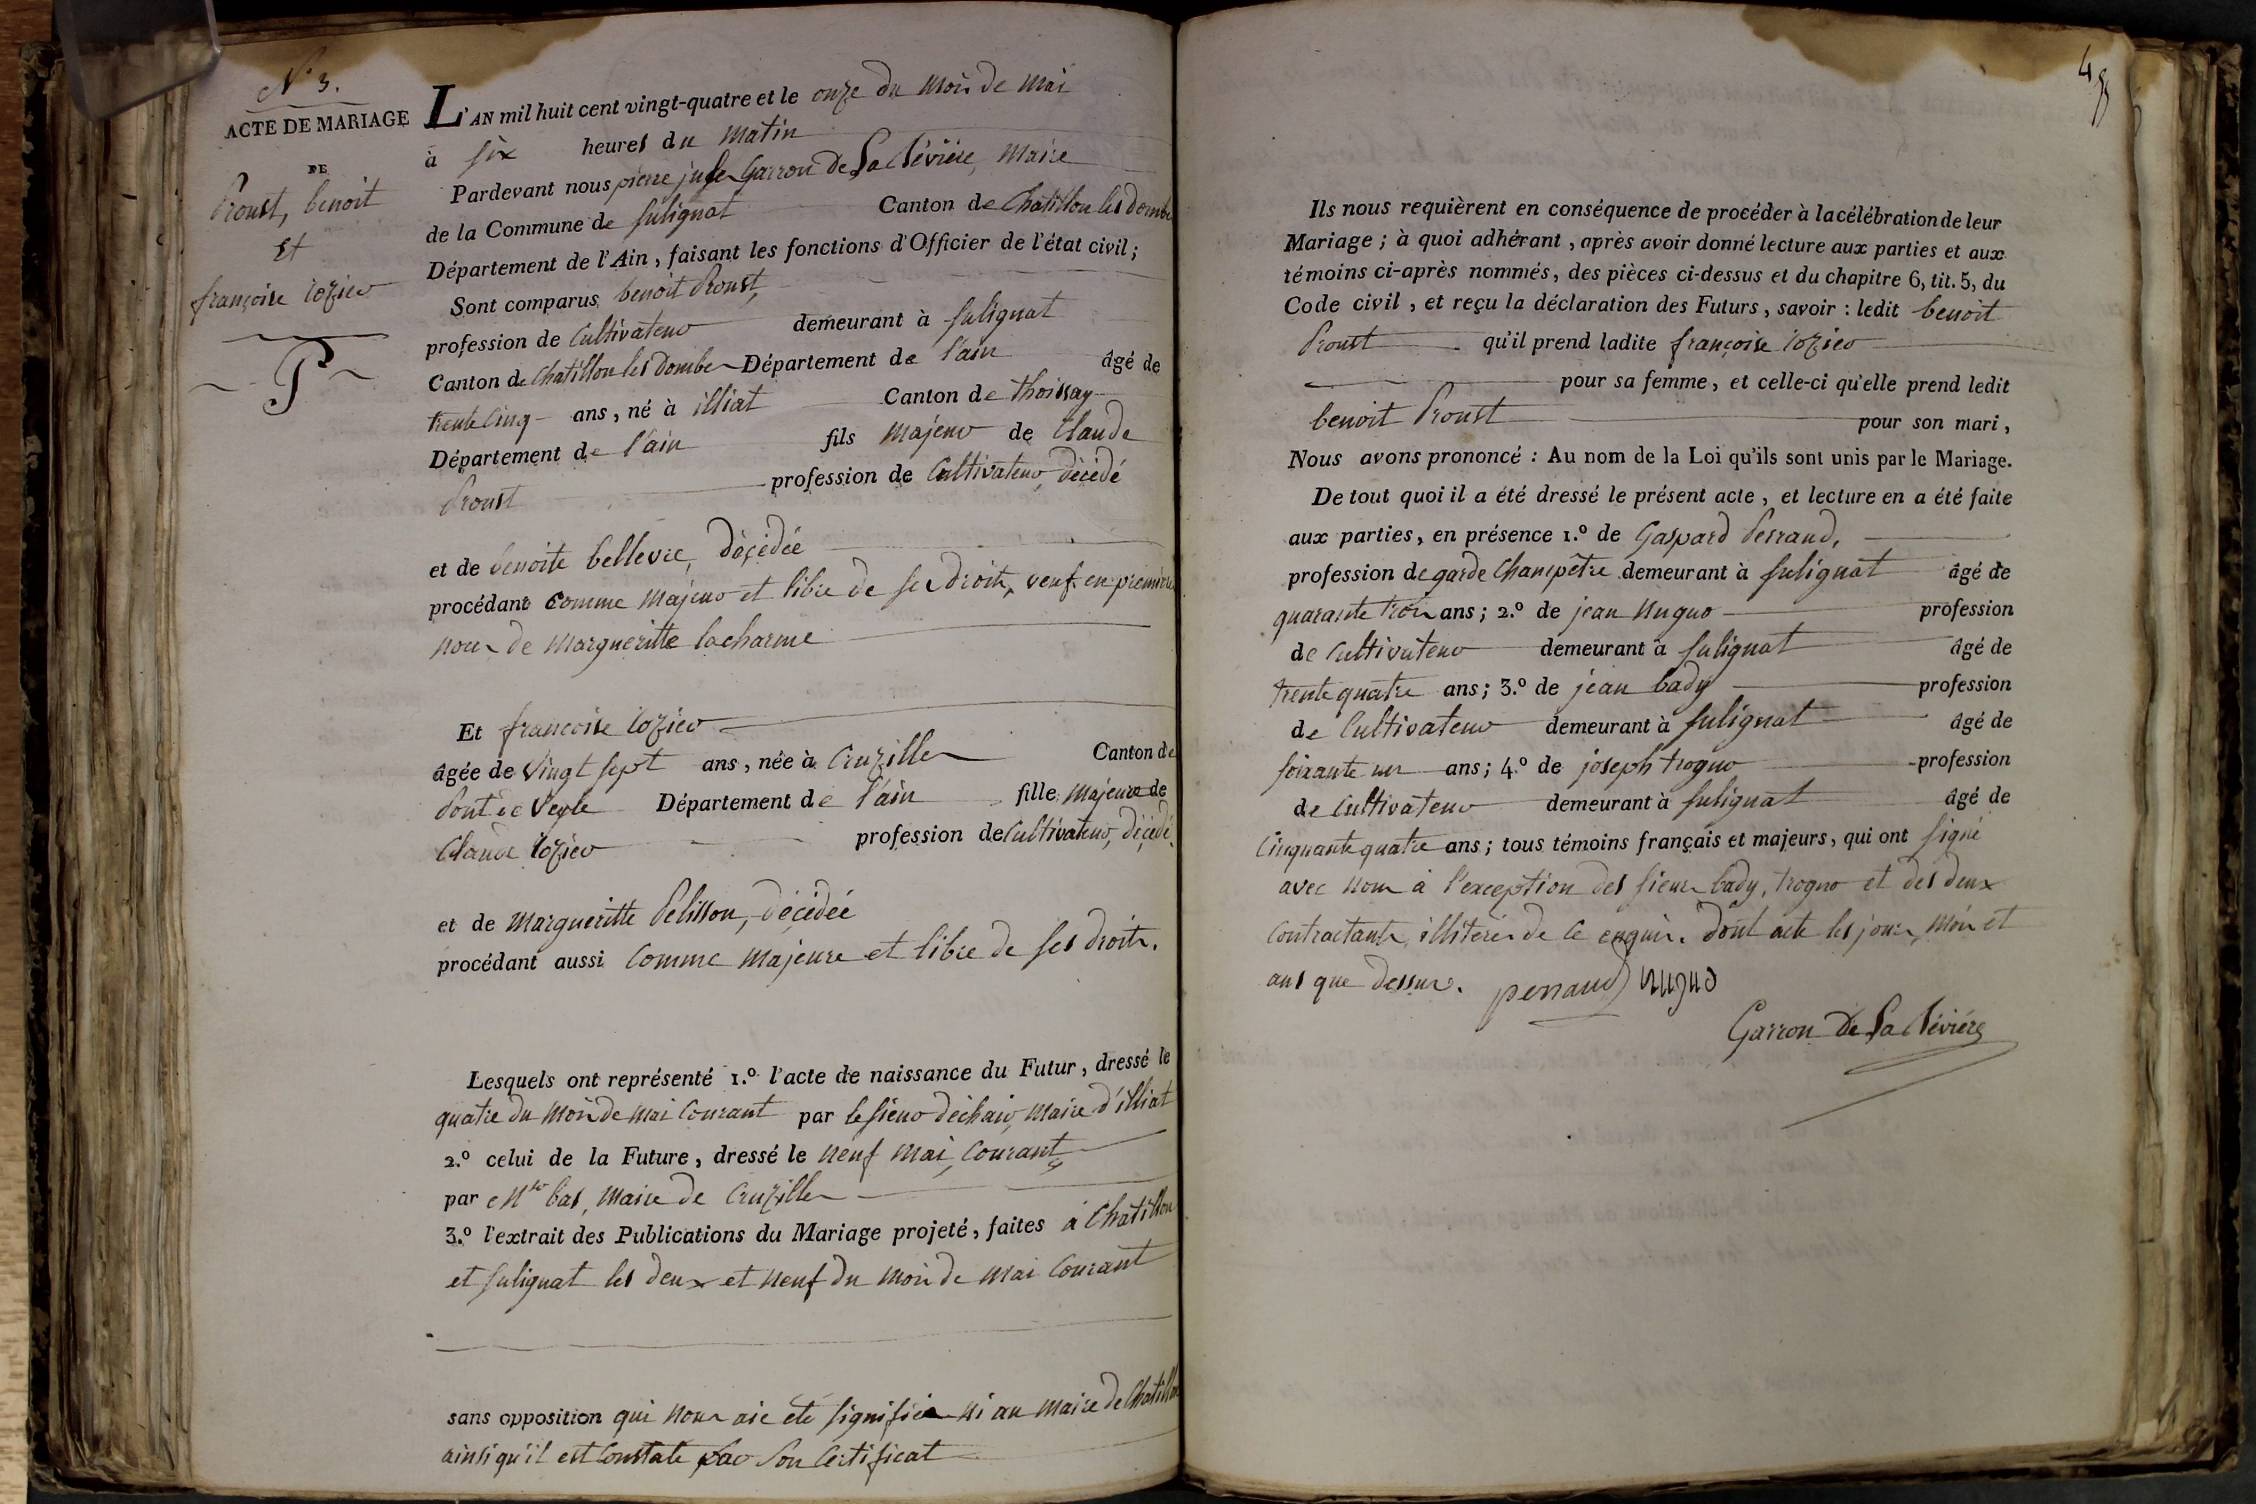 N° 3.
ACTE DE MARIAGE
DE
Proust, benoit
et
françoise cozier
P
L'AN mil huit cent vingt-quatre et le onze du mois de mai
à six heures du matin
Pardevant nous pierre Garron de La Bévière, Maire
de la Commune de Sulignat Canton de Chatillon les dombes
Département de l'Ain, faisant les fonctions d'Officier de l'état civil;
Sont comparus benoit Proust,
profession de Cultivateur demeurant à Sulignat
Canton de Chatillon les Dombes Département de l'ain âgé de
trente cinq ans, né à illiat Canton de thoissay
Département de l'ain fils majeur de Claude
Proust profession de Cultivateur, décédé
et de benoite bellevre, décédée
procédant comme majeur et libre de ses droits, veuf en premières
noces de margueritte lacharme
Et françoise cozier
âgée de vingt sept ans, née à Cruzilles Canton de
Pont de Veyle Département de l'ain fille majeure de
Claude cozier profession de Cultivateur, décédé,
et de margueritte Pelisson, décédée
procédant aussi comme majeure et libre de ses droits.
Lesquels ont représenté 1.º l'acte de naissance du Futur, dressé le
quatre du mois de mai courant par le sieur déchair, Maire d'illiat
2.º celui de la Future, dressé le neuf mai, courant
par Mr bas, Maire de Cruzilles
3.º l'extrait des Publications du Mariage projeté, faites à Chatillon
et Sulignat les deux et neuf du mois de mai courant
sans opposition qui nous aie été signifiée ni au maire de Chatillon
ainsi qu'il est constaté par son Certificat
4
Ils nous requièrent en conséquence de procéder à la célébration de leur
Mariage; à quoi adhérant, après avoir donné lecture aux parties et aux
témoins ci-après nommés, des pièces ci-dessus et du chapitre 6, tit. 5, du
Code civil, et reçu la déclaration des Futurs, savoir: ledit benoit
Proust qu'il prend ladite françoise cozier
pour sa femme, et celle-ci qu'elle prend ledit
benoit Proust pour son mari,
Nous avons prononcé: Au nom de la Loi qu'ils sont unis par le Mariage.
De tout quoi il a été dressé le présent acte, et lecture en a été faite
aux parties, en présence 1.º de Gaspard Perraud,
profession de garde Champêtre demeurant à Sulignat âgé de
quarante trois ans; 2.º de jean Nugue profession
de Cultivateur demeurant à Sulignat âgé de
trente quatre ans; 3.º de jean bady profession
de Cultivateur demeurant à Sulignat âgé de
soixante un ans; 4.º de joseph trogno profession
de Cultivateur demeurant à Sulignat âgé de
Cinquante quatre ans; tous témoins français et majeurs, qui ont signé
avec nous à l'exception des sieurs bady, trogno et des deux
contractants, illitérés de ce enquis. dont acte les jours, mois et
ans que dessus. perraud
Garron de La Bévière